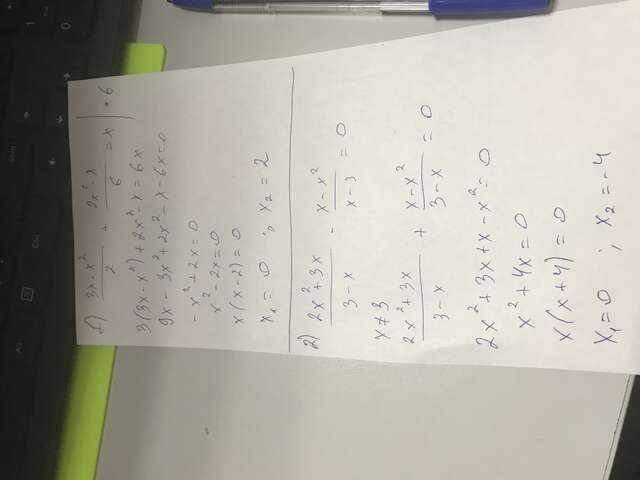 1) (3x-x²)/2 + (2x²-x)/6 = x | • 6
3(3x-x²)+2x²-x=6x
9x-3x²+2x²-x-6x=0
-x²+2x=0
x²-2x=0
x(x-2)=0
x₁=0; x₂=2
2) (2x²+3x)/(3-x) - (x-x²)/(x-3) = 0
x≠3
(2x²+3x)/(3-x) + (x-x²)/(3-x) = 0
2x²+3x+x-x²=0
x²+4x=0
x(x+4)=0
x₁=0; x₂=-4